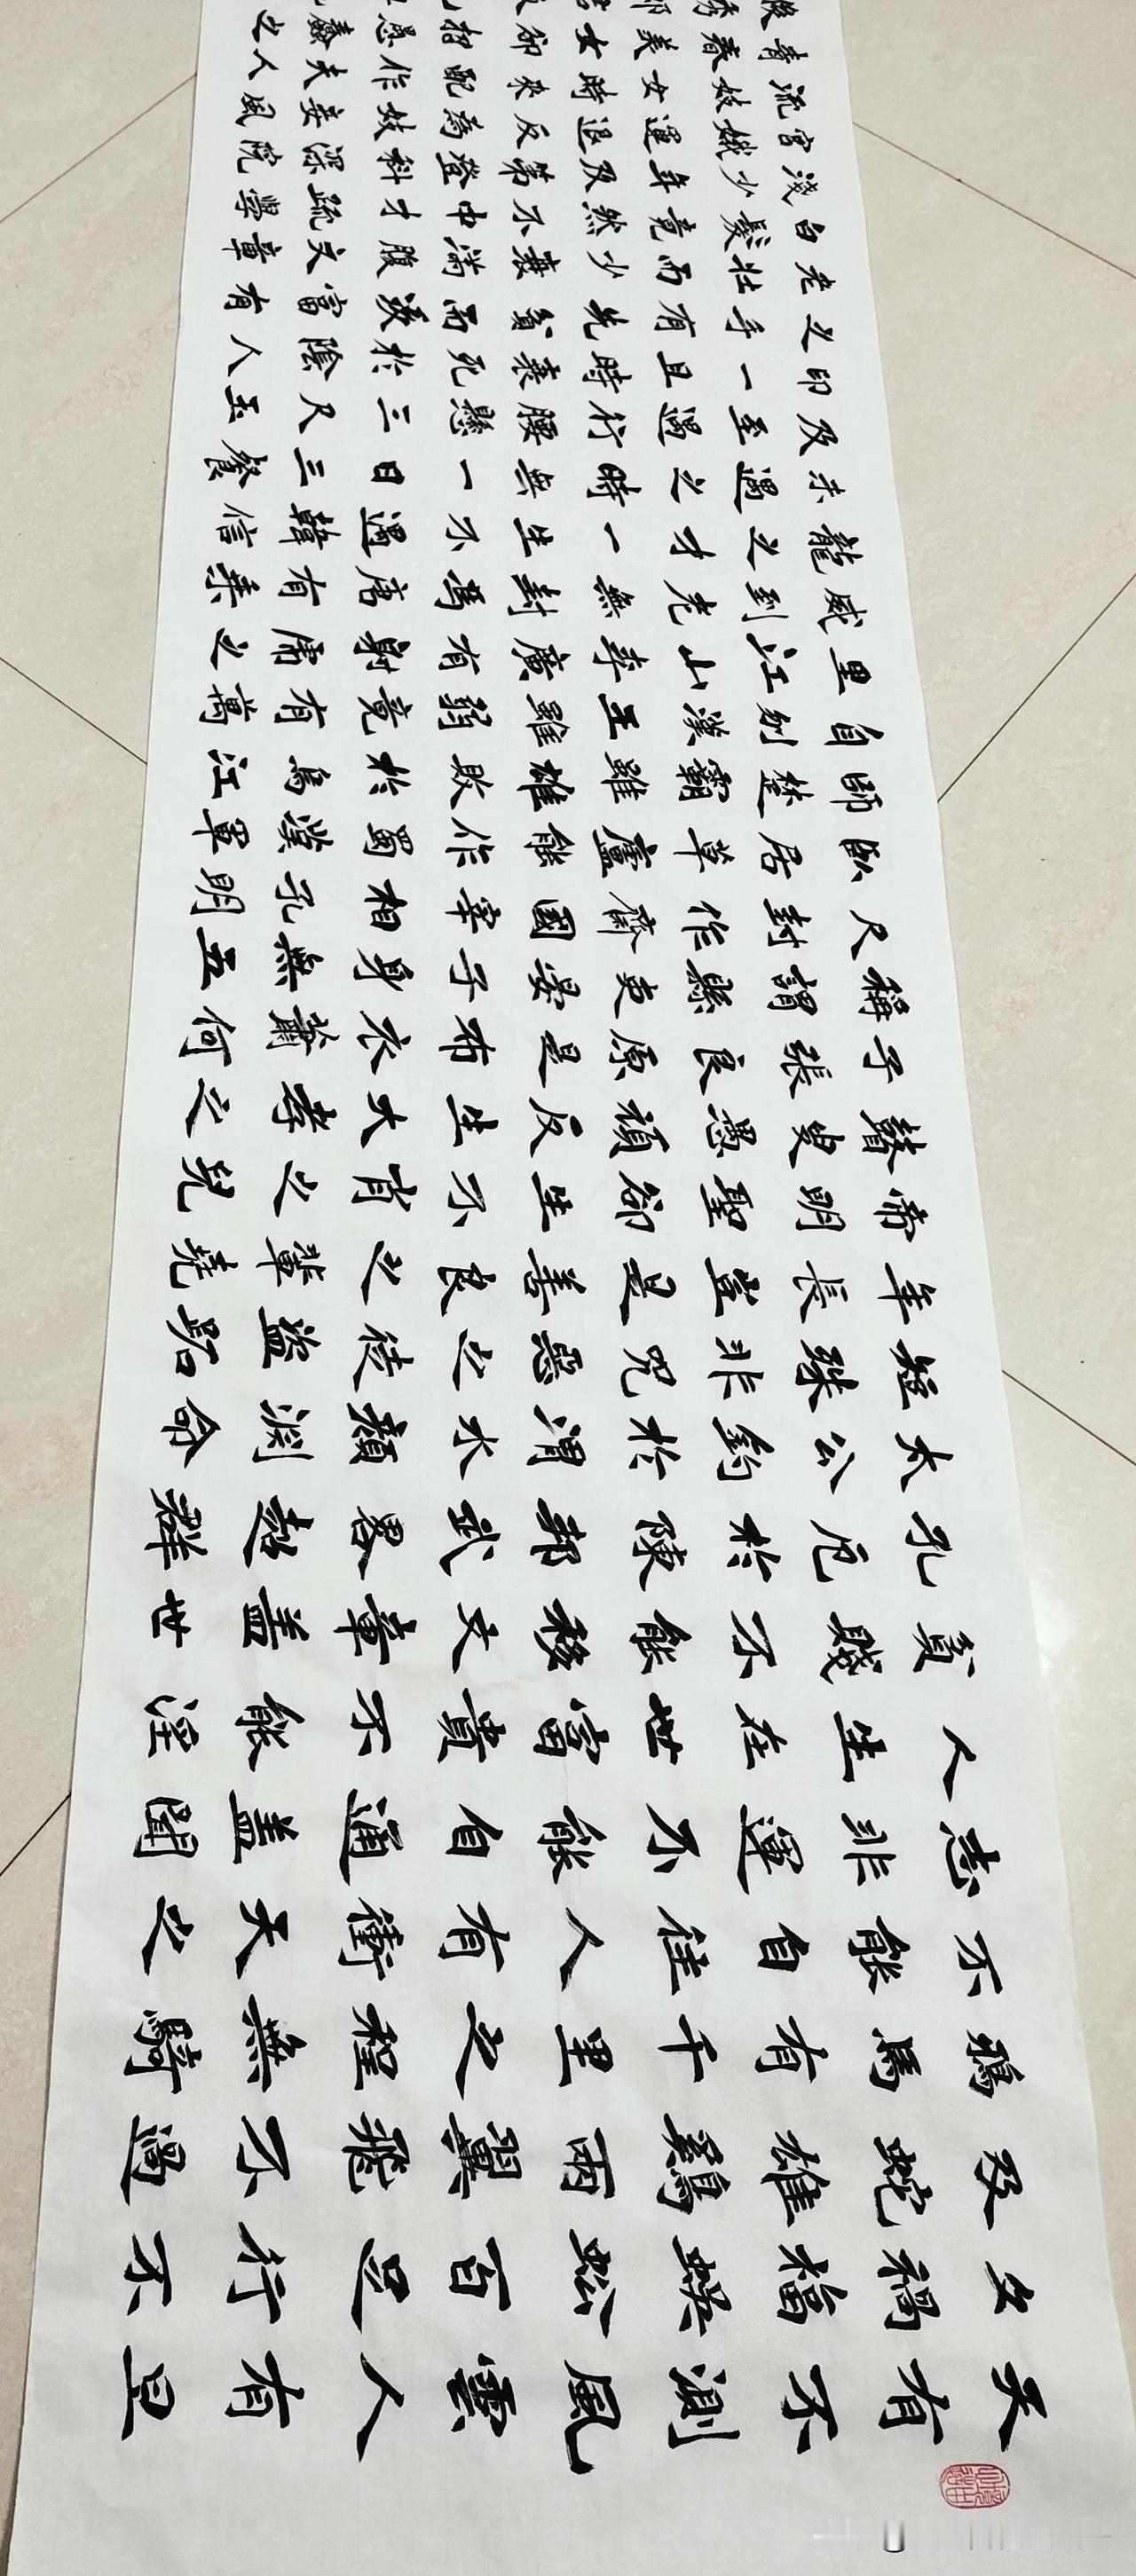 天有不測風雲人有旦
夕禍福蜈蚣百足行不
及蛇雄鷄兩翼飛不過
鴉馬有千里之程無騎
不能自往人有衝天之
志非運不能自通盖聞
人生在世富貴不能淫
貧賤不能移文章盖世
孔厄於陳邦武畧超群
太公釣於渭水顏淵命
短殊非兇惡之徒盜跖
年長豈是善良之輩堯
帝明聖卻生不肖之兒
瞽叟愚頑反生大孝之
子張良原是布衣蕭何
稱謂縣吏晏子身無五
尺封作齊國宰相孔明
臥居草廬能作蜀漢軍
師楚霸雖雄敗於烏江
自刎漢王雖弱竟有萬
里江山李廣有射虎之
威到老無封馮唐有乘
龍之才一生不遇韓信
未遇之時無一日三餐
及至遇行腰懸三尺玉
印一旦時衰死於陰人
又有先貧而後富有
老壯而少衰滿腹文章
白髮竟然不中才疏學
淺少年及第登科深院
宮娥運退反為妓妾風
流妓女時來配作夫人
青春美女卻招愚蠢之